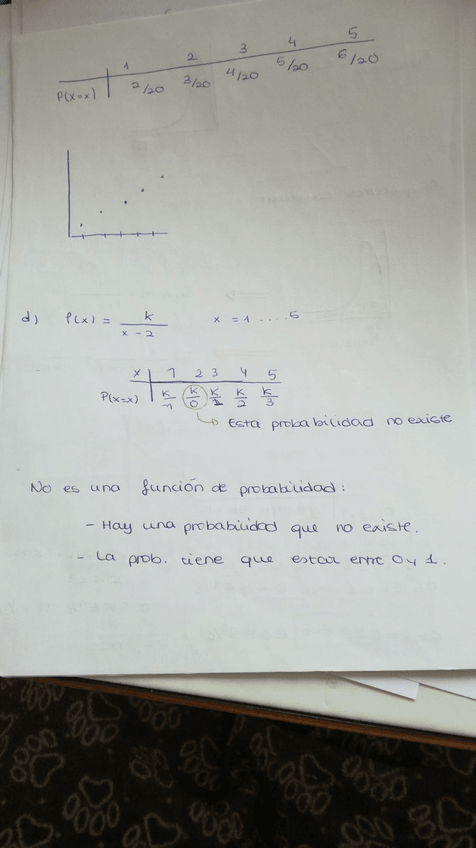 1 2 3 4 5
P(x=x) 2/20 3/20 4/20 5/20 6/20
d) P(x) = k/x-2 x = 1 .... 5
x 1 2 3 4 5
P(x=x) k/-1 k/0 k/1 k/2 k/3
Esta probabilidad no existe
No es una función de probabilidad:
- Hay una probabilidad que no existe.
- La prob. tiene que estar entre 0 y 1.